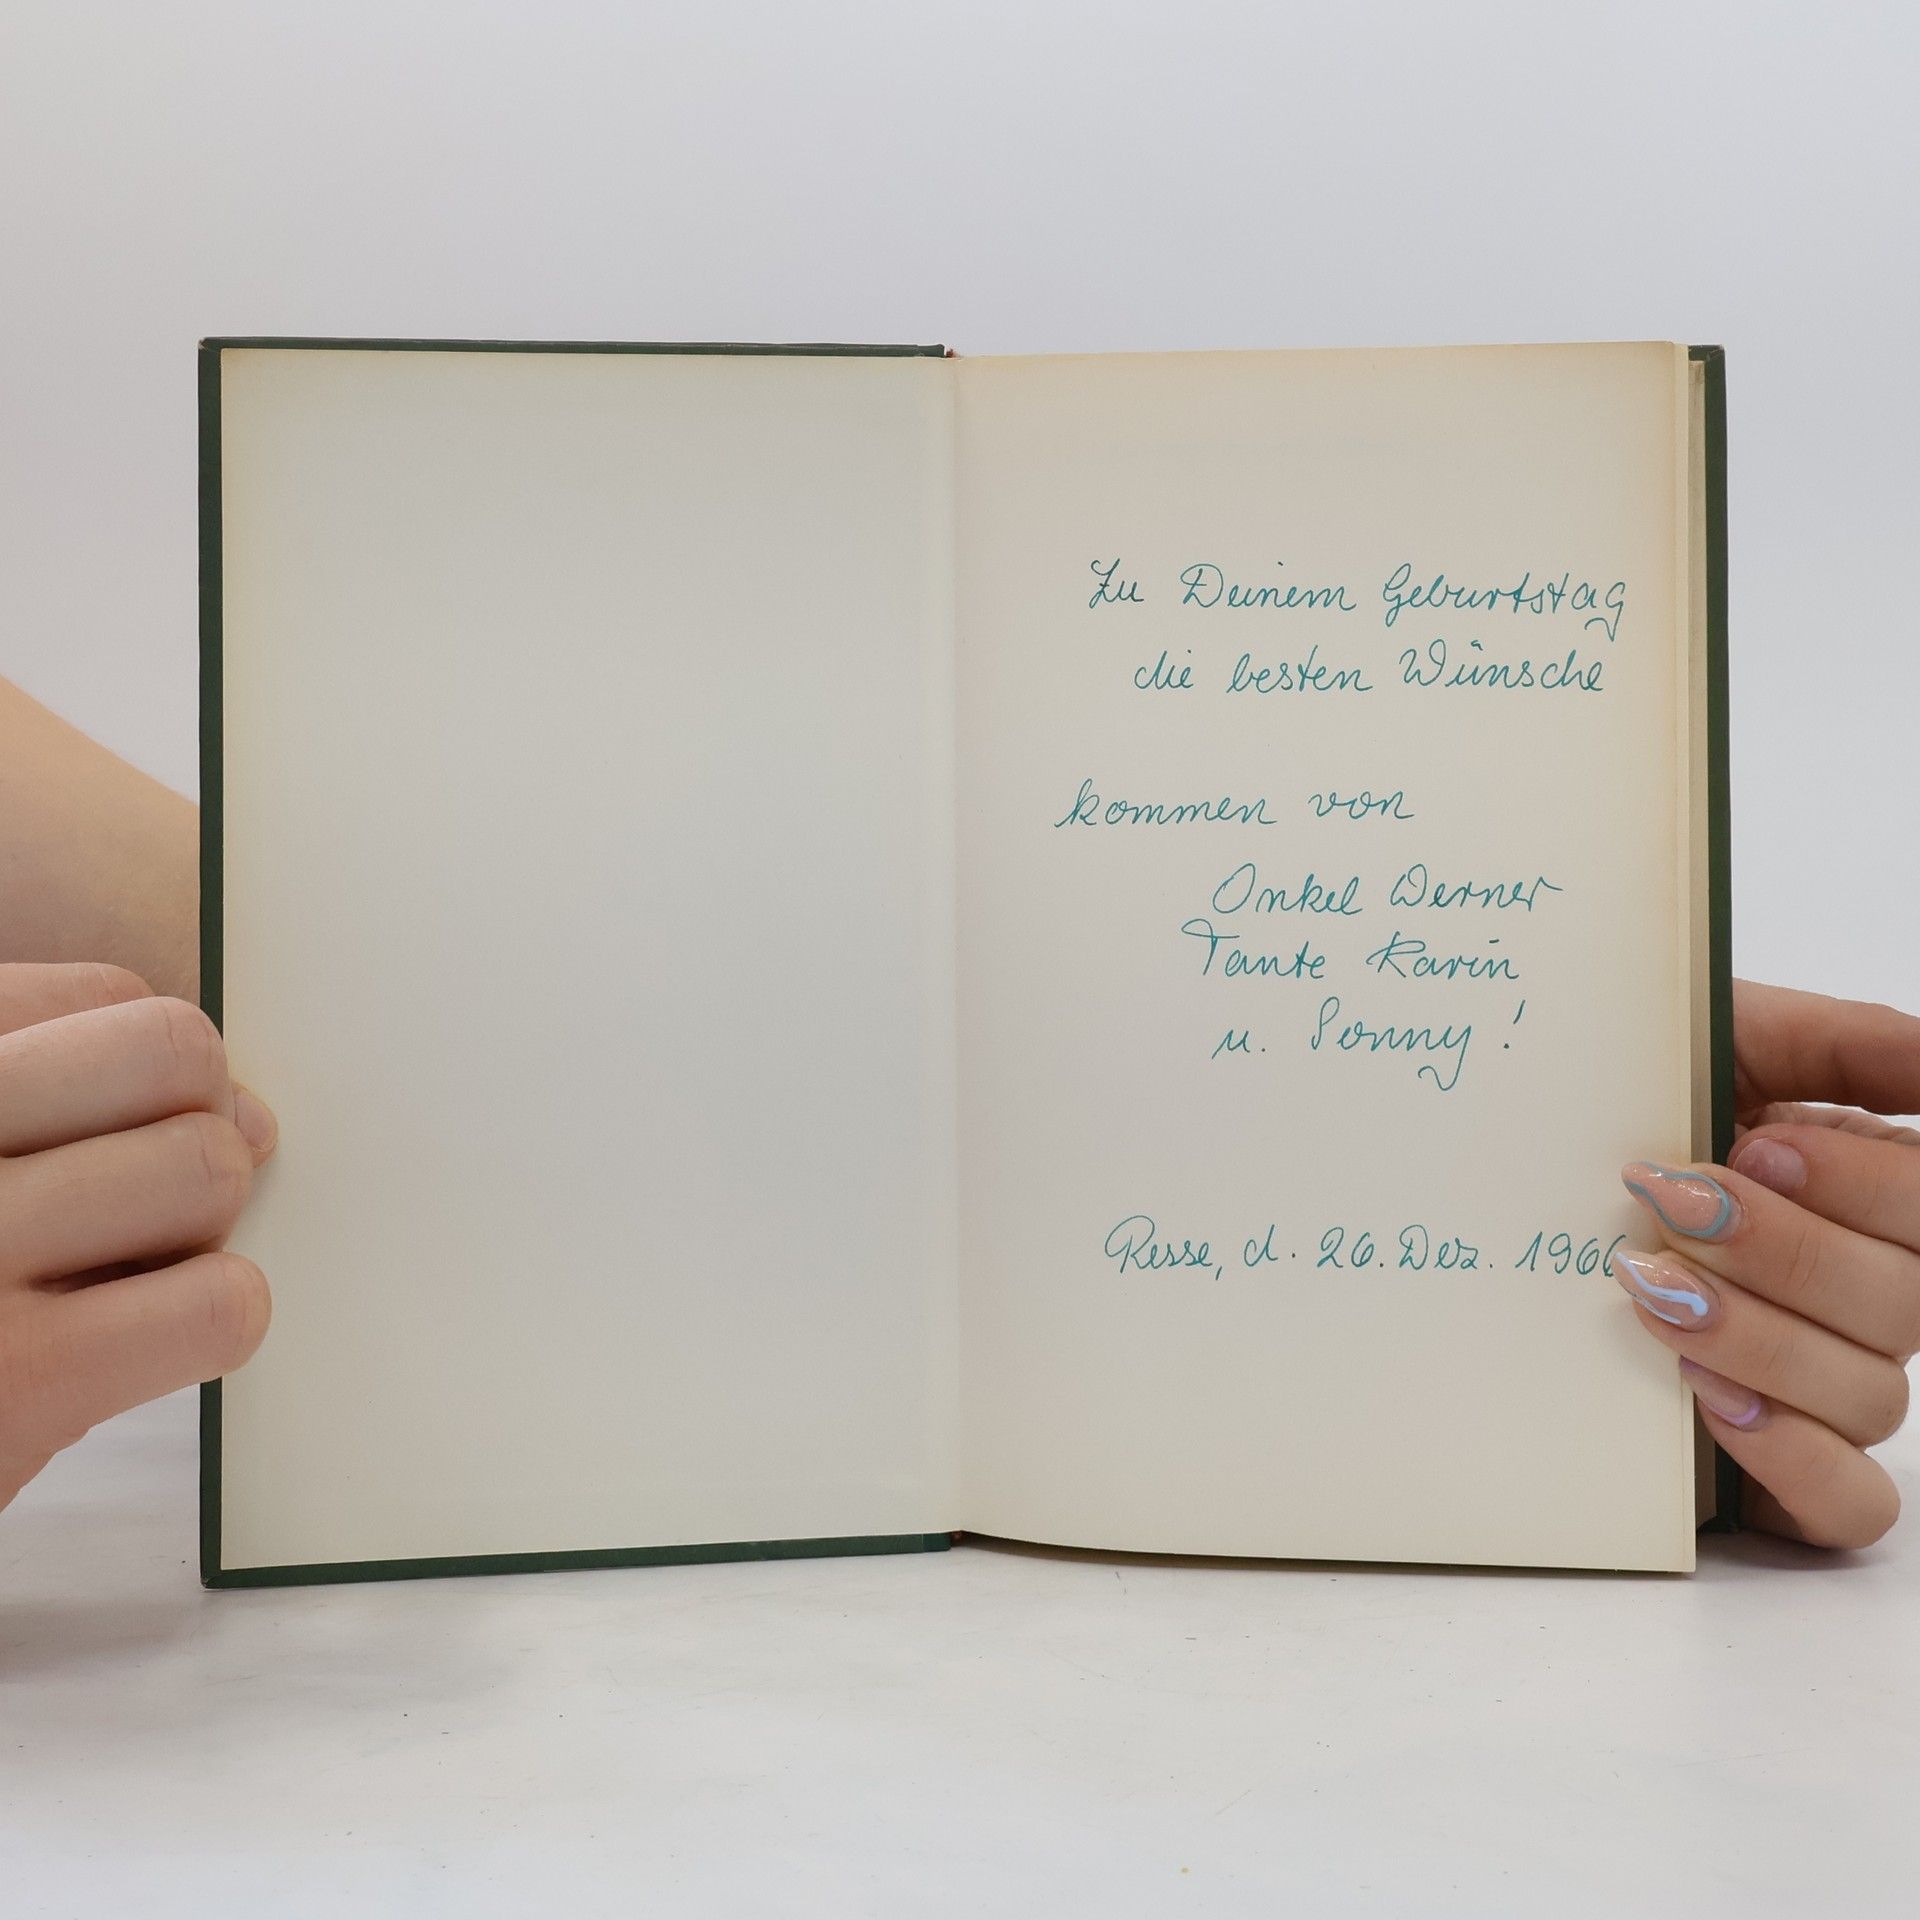 Zu Deinem Geburtstag
die besten Wünsche
kommen von
Onkel Werner
Tante Karin
u. Sonny!
Resse, d. 26. Dez. 1966